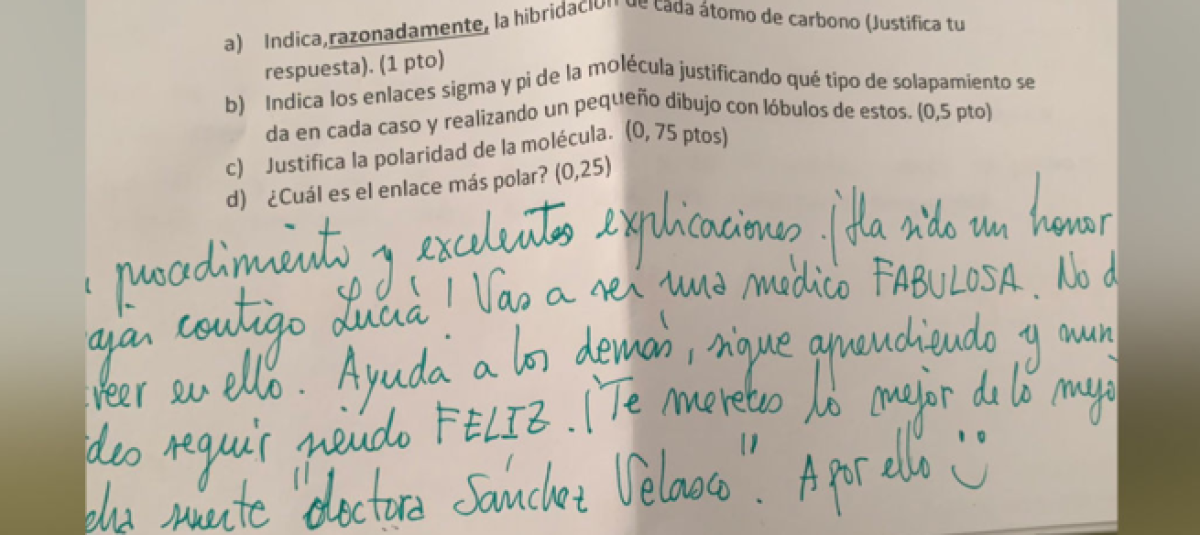 a) Indica, razonadamente, la hibridación de cada átomo de carbono (Justifica tu
respuesta). (1 pto)
b) Indica los enlaces sigma y pi de la molécula justificando qué tipo de solapamiento se
da en cada caso y realizando un pequeño dibujo con lóbulos de estos. (0,5 pto)
c) Justifica la polaridad de la molécula. (0, 75 ptos)
d) ¿Cuál es el enlace más polar? (0,25)
procedimiento y excelentes explicaciones. ¡Ha sido un honor
ajar contigo Lucía! Vas a ser una médico FABULOSA. No d
reer en ello. Ayuda a los demás, sigue aprendiendo y nun
des seguir siendo FELIZ. ¡Te mereces lo mejor de lo mejo
cha suerte "doctora Sánchez Velasco". A por ello